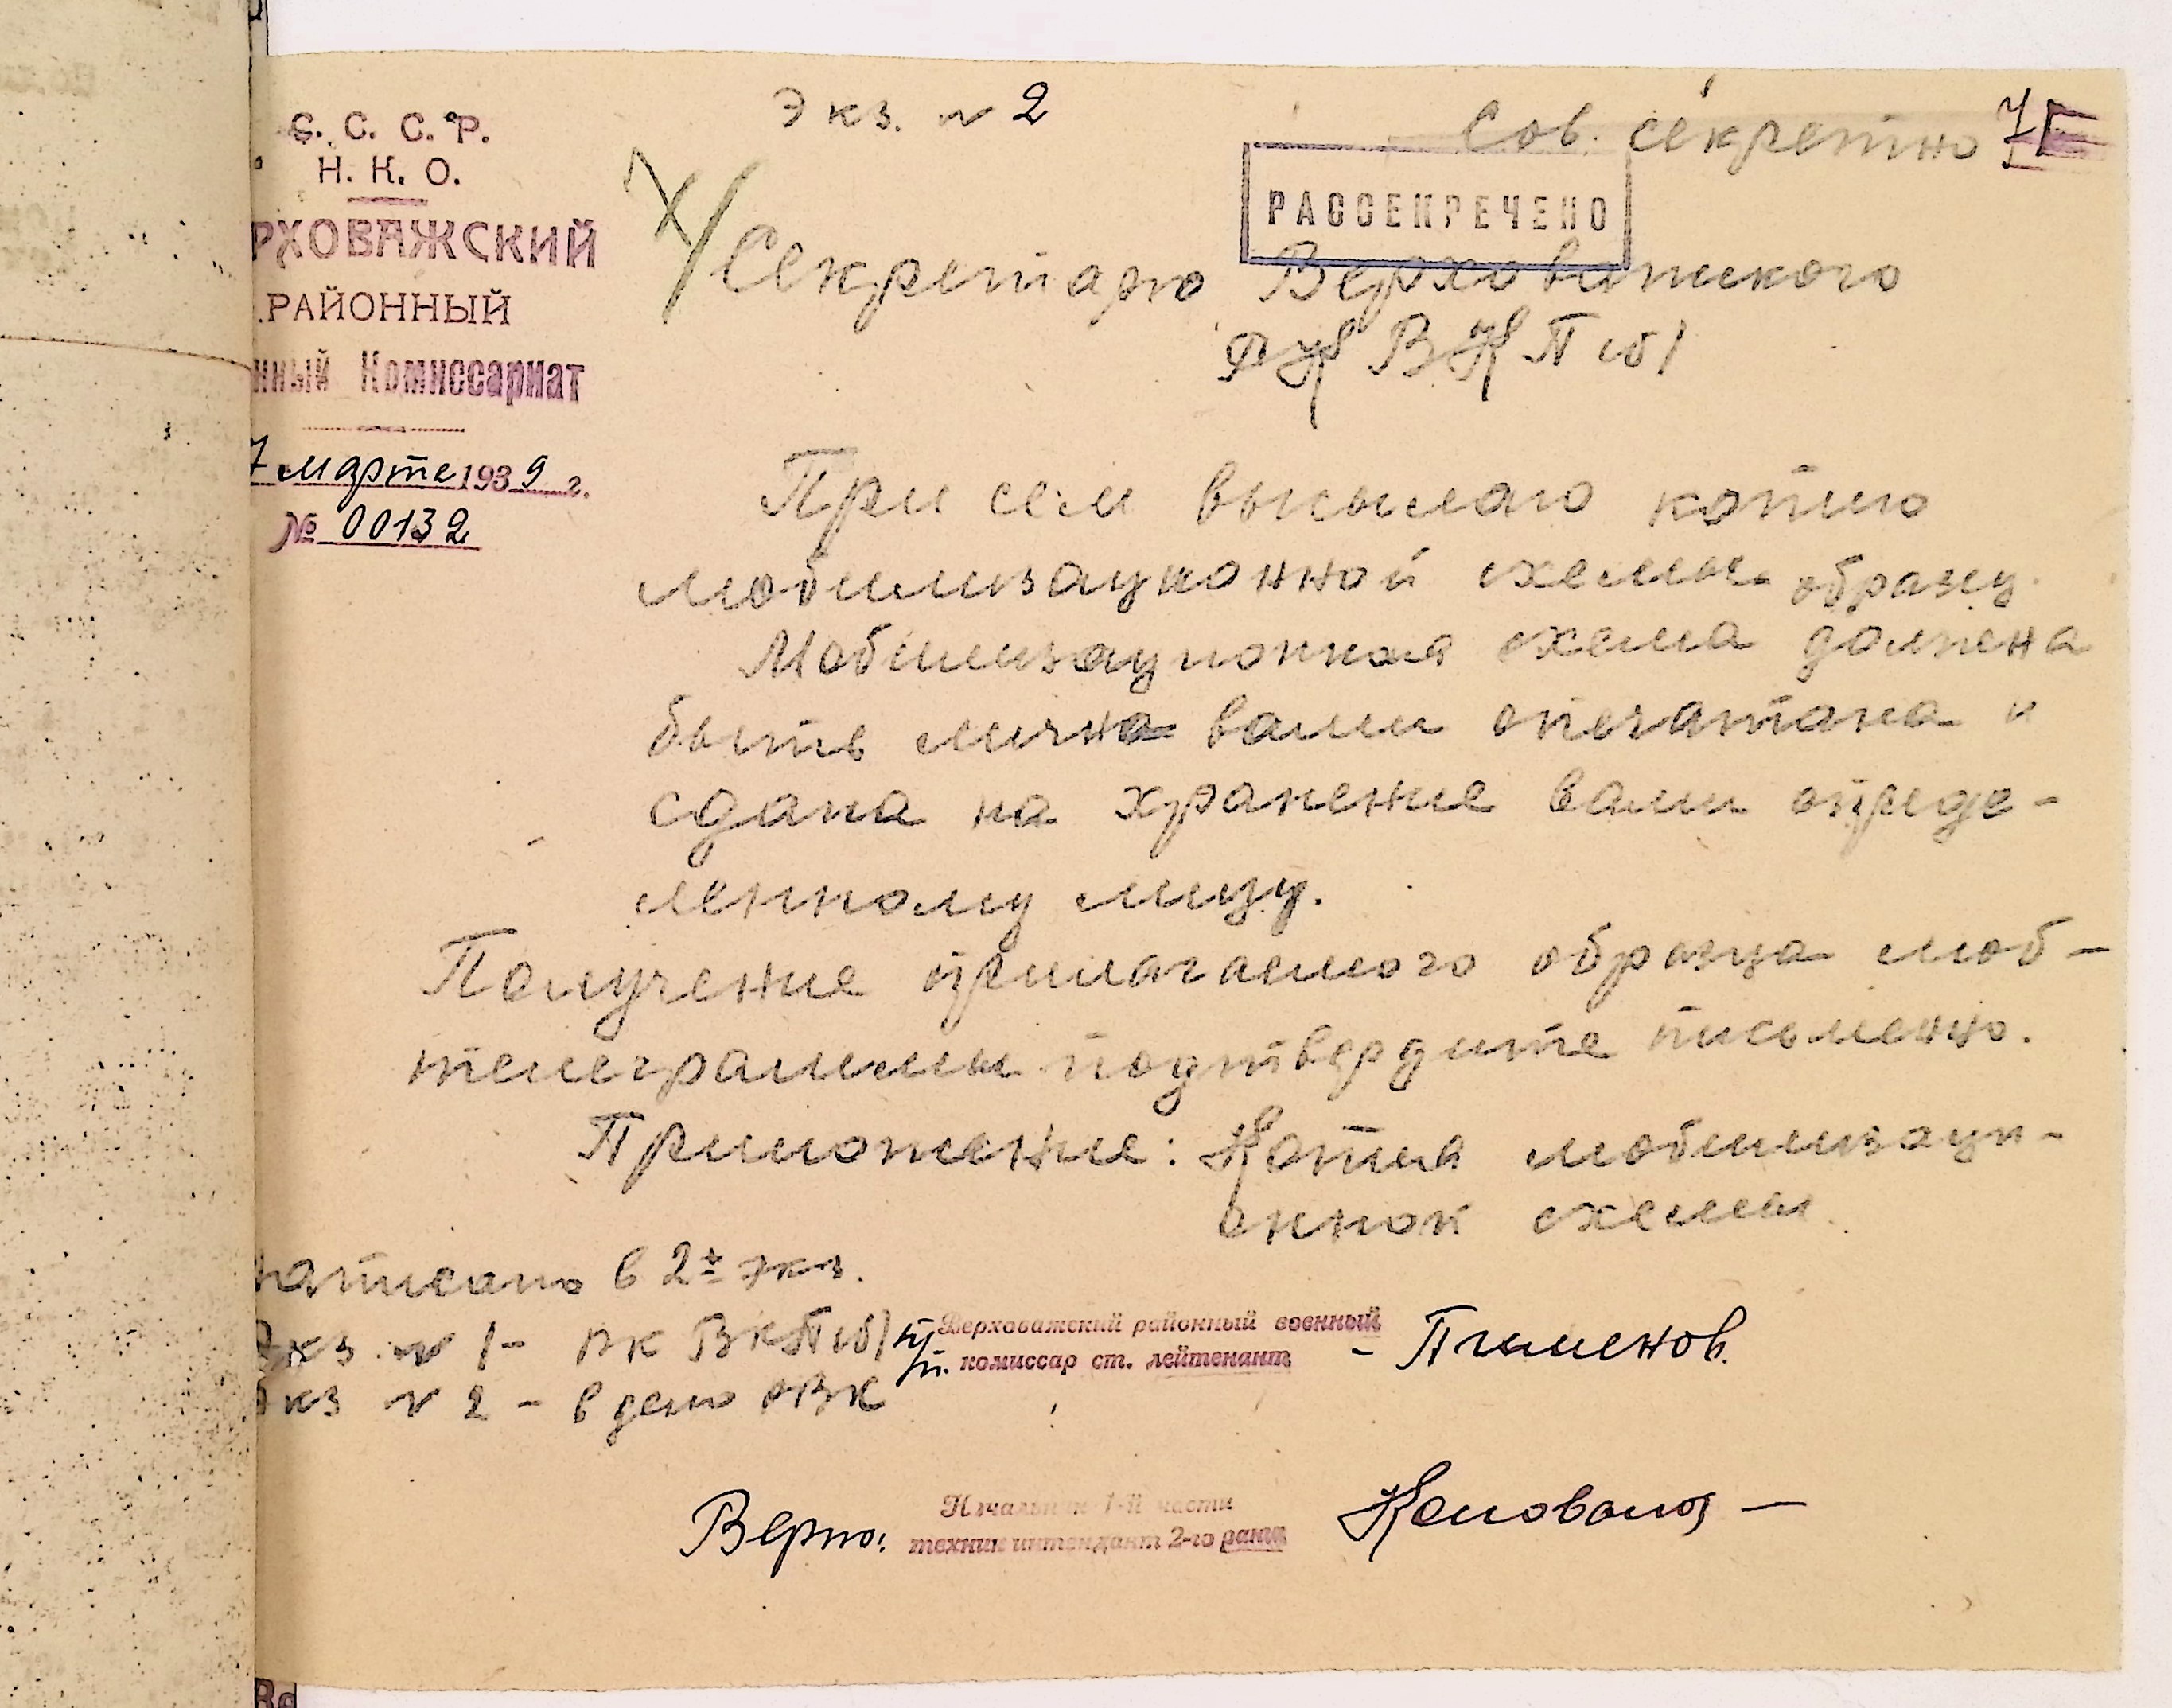 С. С. С. Р.
Н. К. О.
РХОВАЖСКИЙ
РАЙОННЫЙ
нный Комиссариат
7 марта 1939 г.
№ 00132
Экз. № 2
Сов. секретно
РАССЕКРЕЧЕНО
Секретарю Верховажского
РК ВКП(б)
При сем высылаю копию
мобилизационной схемы образц.
Мобилизационная схема должена
быть лично вами опечатана и
сдана на хранение вами опреде-
ленному лицу.
Получение прилагаемого образца моб-
телеграммы подтвердите письменно.
Приложение: Копия мобилизаци-
онной схемы.
написано в 2х экз.
Экз № 1 - РК ВКП(б)
Экз № 2 - в дело РВК
Верховажский районный военный
комиссар ст. лейтенант - Пименов.
Верно:
Начальник 1-й части
техник интендант 2-го ранга
Коновалов